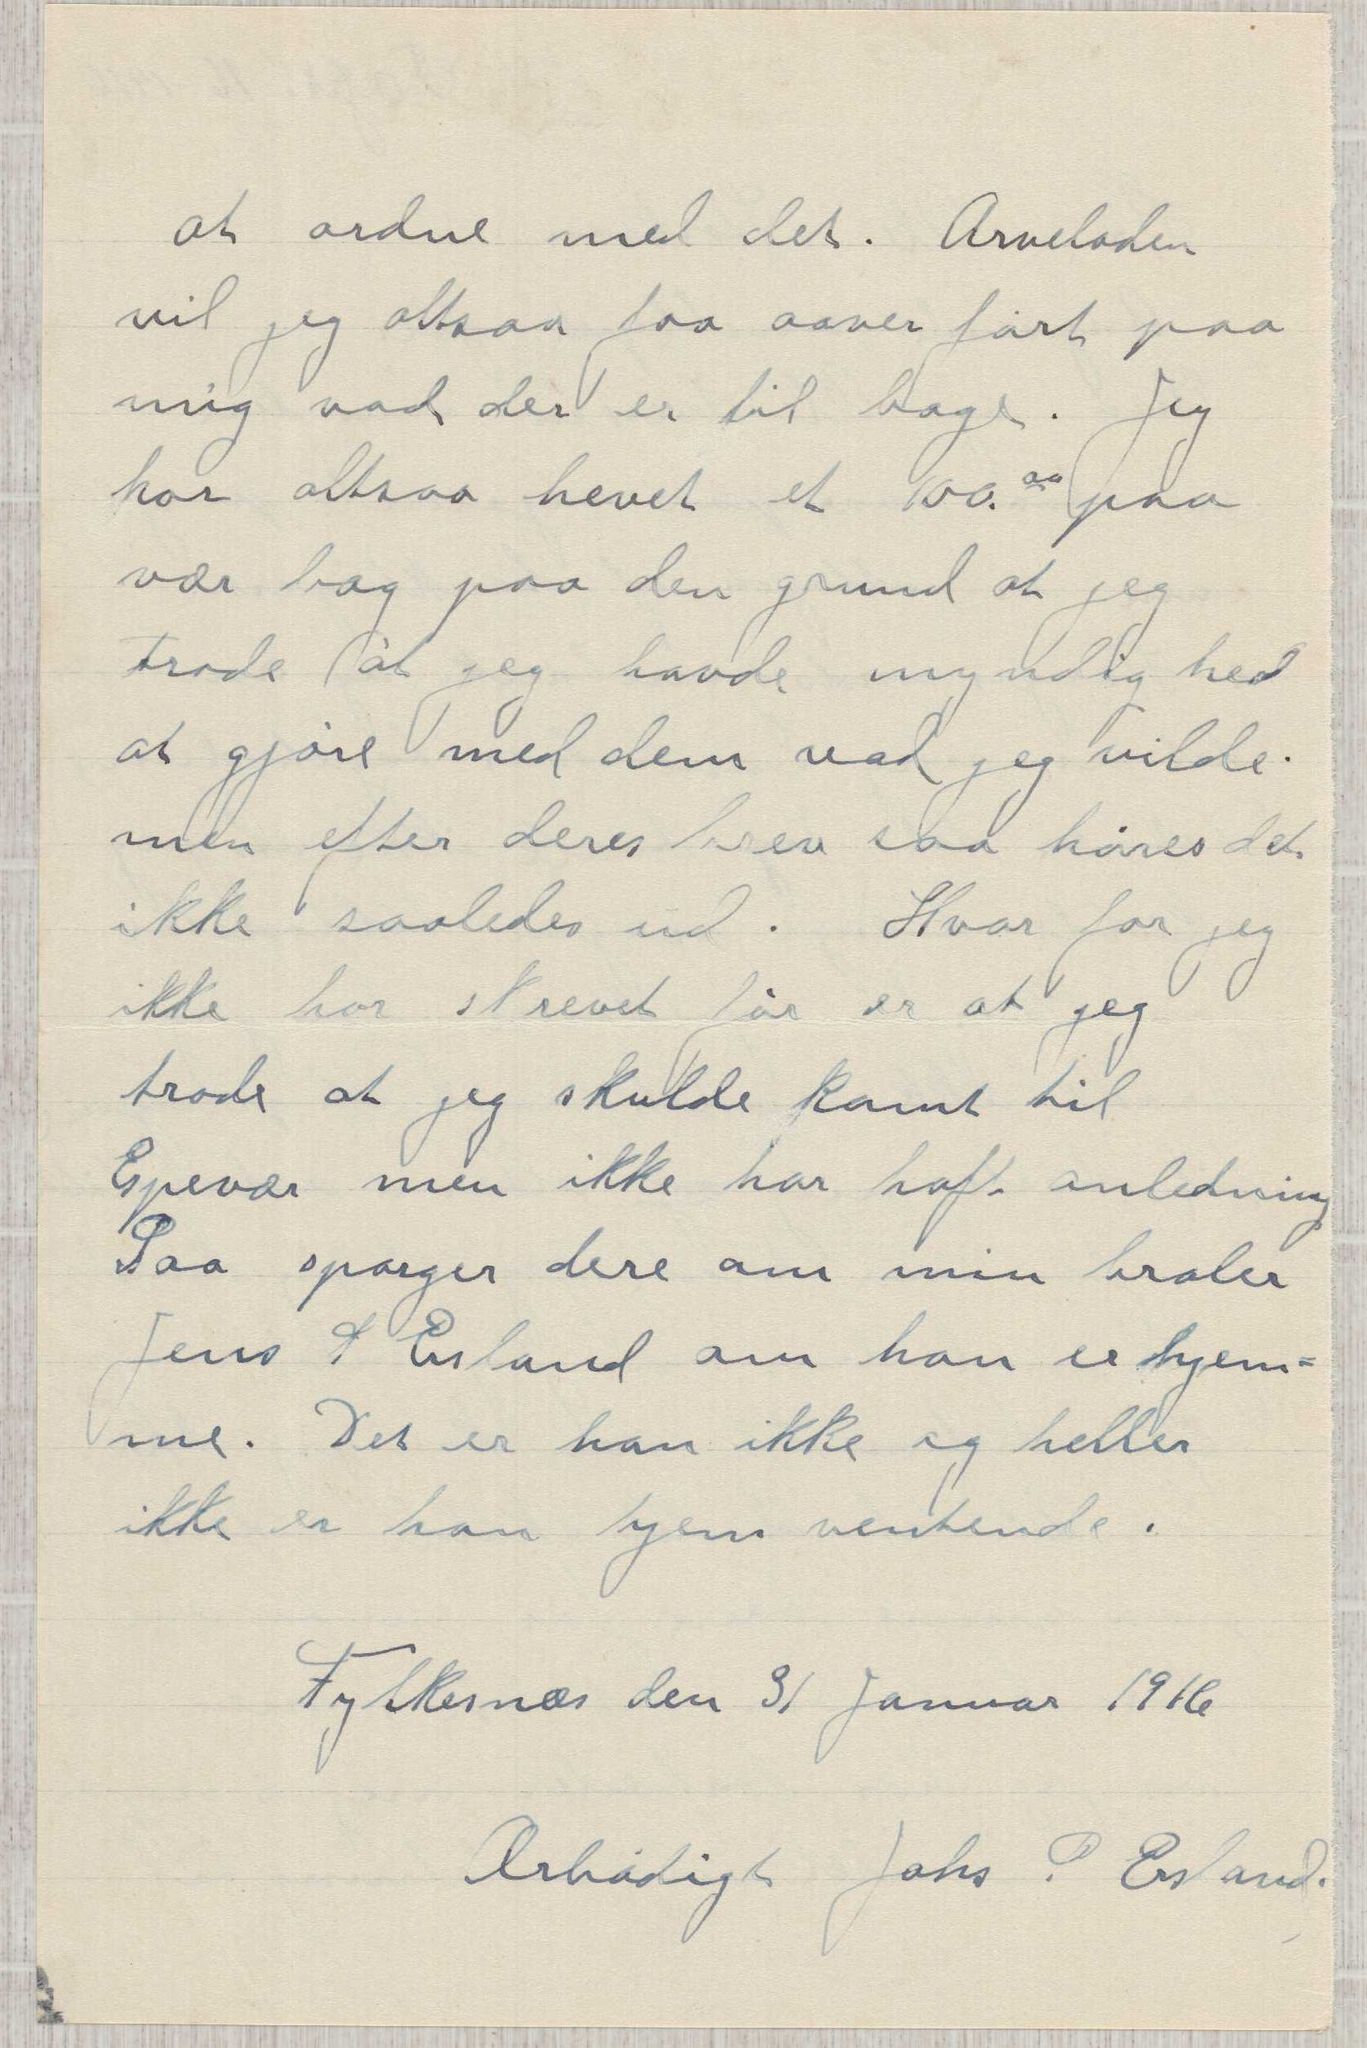 at ordne med det. Arveloden
vil jeg altsaa faa aaver fört paa
mig vad der er til bage. Jeg
har altsaa hevet et 100.00 paa
vær bog paa den grund at jeg
trode at jeg havde myndig hed
at gjöre med dem vad jeg vilde.
men efter deres brev saa höres det
ikke saaledes ud. Hvor for jeg
ikke har skrevet för er at jeg
trode at jeg skulde komt til
Espevær men ikke har haft anledning
Saa sporger dere om min broder
Jens P Ersland om han er hjem=
me. Det er han ikke og heller
ikke er han hjem ventende.
Fylkesnæs den 31 Januar 1916
Ærbödigt Johs P Ersland.